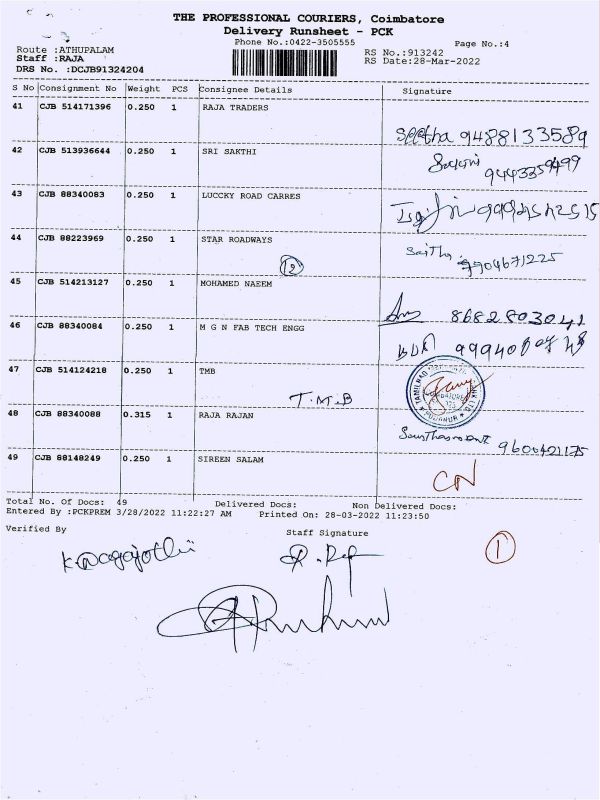 THE PROFESSIONAL COURIERS, Coimbatore
Delivery Runsheet - PCK
Phone No.:0422-3505555 Page No.:4
Route :ATHUPALAM RS No.:913242
Staff :RAJA RS Date:28-Mar-2022
DRS No. :DCJB91324204
S No Consignment No Weight PCS Consignee Details Signature
41 CJB 514171396 0.250 1 RAJA TRADERS
9488133589
42 CJB 513936644 0.250 1 SRI SAKTHI
9443359499
43 CJB 88340083 0.250 1 LUCCKY ROAD CARRES
44 CJB 88223969 0.250 1 STAR ROADWAYS
12
9904671225
45 CJB 514213127 0.250 1 MOHAMED NAEEM
8682803041
46 CJB 88340084 0.250 1 M G N FAB TECH ENGG
47 CJB 514124218 0.250 1 TMB
T.M.B
48 CJB 88340088 0.315 1 RAJA RAJAN
9600421175
49 CJB 88148249 0.250 1 SIREEN SALAM
CN
Total No. Of Docs: 49 Delivered Docs: Non Delivered Docs:
Entered By :PCKPREM 3/28/2022 11:22:27 AM Printed On: 28-03-2022 11:23:50
Verified By Staff Signature
1